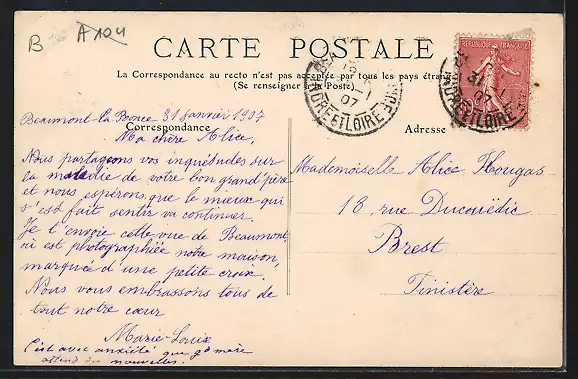 B A104
CARTE POSTALE
REPUBLIQUE FRANÇAISE
La Correspondance au recto n'est pas acceptée par tous les pays étrang
(Se renseigner à la Poste)
INDRE ET LOIRE
31 -1
07
INDRE ET LOIRE
Correspondance
Adresse
Beaumont-la-Ronce 31 Janvier 1907
Ma chère Alice,
Nous partageons vos inquiétudes sur
la maladie de votre bon grand'père
et nous espérons que le mieux qui
s'est fait sentir va continuer.
Je t'envoie cette vue de Beaumont,
où est photographiée notre maison,
marquée d'une petite croix.
Nous vous embrassons tous de
tout notre cœur
Marie-Louise
C'est avec anxiété que gd mère
attend des nouvelles.
Mademoiselle Alice Hougas
18, rue Ducouëdic
Brest
Finistère